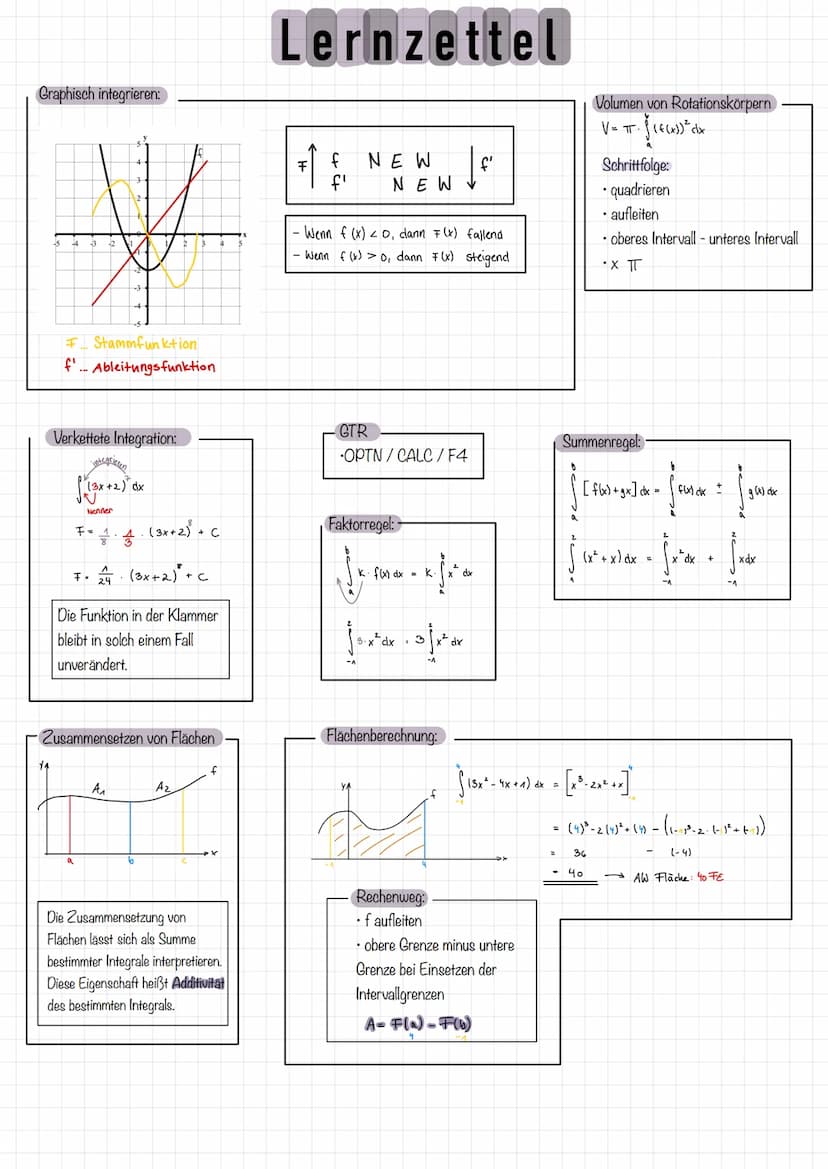 Lernzettel
Graphisch integrieren:
y
f
5
4
3
2
1
-5 -4 -3 -2 1 2 3 4 5 x
-1
-2
-3
-4
-5
F... Stammfunktion
f'... Ableitungsfunktion
F ↑ f N E W ↓ f'
f' N E W
- Wenn f(x) < 0, dann F(x) fallend
- Wenn f(x) > 0, dann F(x) steigend
Volumen von Rotationskörpern
V = π · ∫ (f(x))² dx
a
Schrittfolge:
· quadrieren
· aufleiten
· oberes Intervall - unteres Intervall
· x π
Verkettete Integration:
integrieren
∫ (3x+2) dx
Nenner
F = 1/8 · 1/3 · (3x+2)⁸ + C
F = 1/24 · (3x+2)⁸ + C
Die Funktion in der Klammer
bleibt in solch einem Fall
unverändert.
GTR
·OPTN / CALC / F4
Faktorregel:
b b
∫ k · f(x) dx = k · ∫ x² dx
a a
2 2
∫ 3·x² dx = 3 ∫ x² dx
-1 -1
Summenregel:
b b b
∫ [f(x)+gx] dx = ∫ f(x) dx ± ∫ g(x) dx
a a a
2 2 2
∫ (x² + x) dx = ∫ x² dx + ∫ xdx
-1 -1
Zusammensetzen von Flächen
y
f
A1 A2
x
a b c
Die Zusammensetzung von
Flächen lässt sich als Summe
bestimmter Integrale interpretieren.
Diese Eigenschaft heißt Additivität
des bestimmten Integrals.
Flächenberechnung:
y
f
x
-1 4
4 4
∫ (3x² - 4x + 1) dx = [x³ - 2x² + x]
-1 -1
= (4)³ - 2(4)² + (4) - ((-1)³ - 2·(-1)² + (-1))
= 36 - (-4)
= 40 → AW Fläche: 40 FE
Rechenweg:
· f aufleiten
· obere Grenze minus untere
Grenze bei Einsetzen der
Intervallgrenzen
A = F(a) - F(b)
4 -1